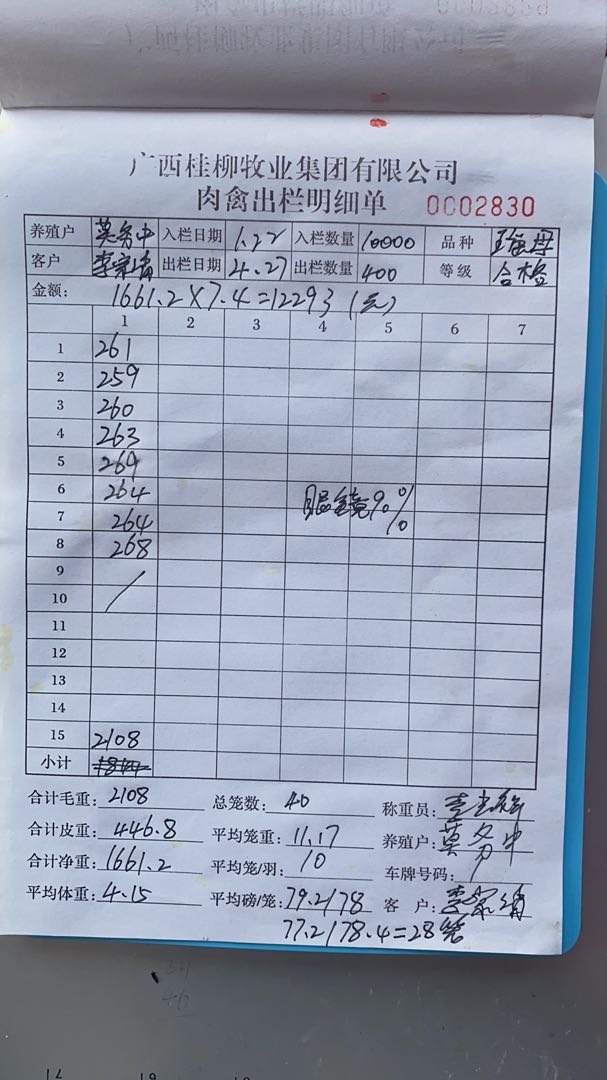 广西桂柳牧业集团有限公司
肉禽出栏明细单 0002830
养殖户 莫务中 入栏日期 1.22 入栏数量 10000 品种
客户 出栏日期 4.27 出栏数量 400 等级 合格
金额: 1661.2×7.4=12293(元)
1 2 3 4 5 6 7
1 261
2 259
3 260
4 263
5 269
6 264 眼镜90%
7 264
8 268
9
10 /
11
12
13
14
15 2108
小计
合计毛重: 2108 总笼数: 40 称重员:
合计皮重: 446.8 平均笼重: 11.17 养殖户: 莫务中
合计净重: 1661.2 平均笼/羽: 10 车牌号码: /
平均体重: 4.15 平均磅/笼: 79.2/78 客户:
77.2/78.4=28笼